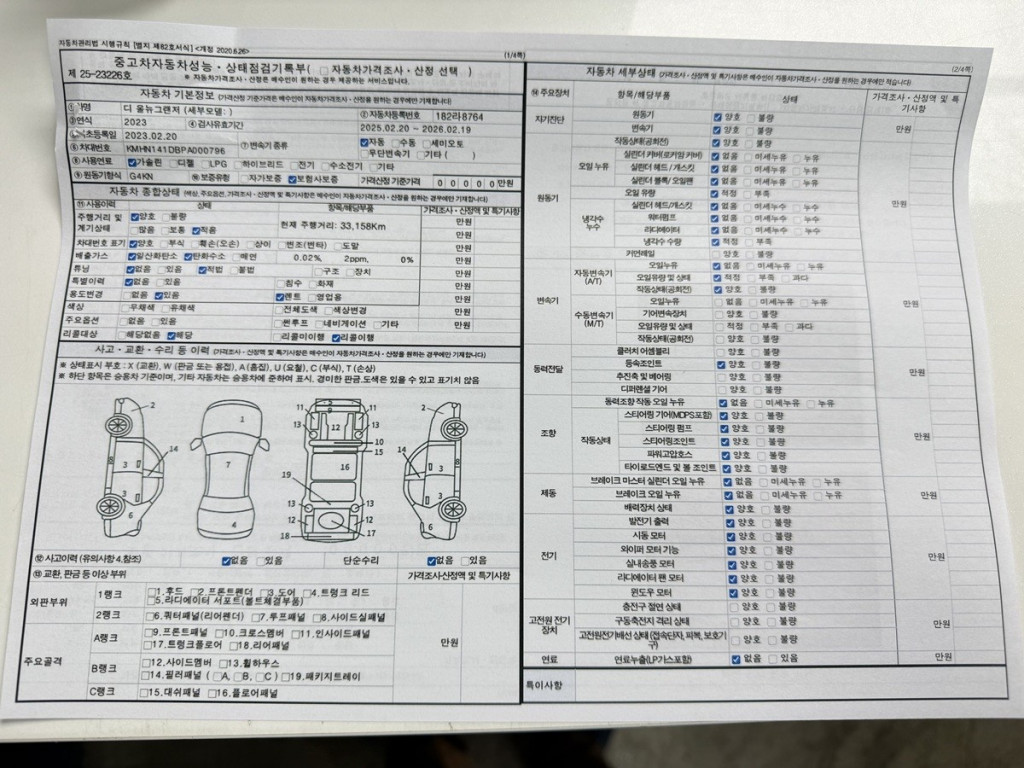 자동차관리법 시행규칙 [별지 제82호서식] <개정 2020.6.26>
(1/4쪽)
중고차자동차성능·상태점검기록부( □ 자동차가격조사·산정 선택 )
제 25-23226호
※ 자동차가격조사·산정은 매수인이 원하는 경우 제공하는 서비스입니다.
자동차 기본정보 (가격산정 기준가격은 매수인이 자동차가격조사·산정을 원하는 경우에만 기재합니다)
① 차명 디 올뉴그랜저 (세부모델: ) ② 자동차등록번호 182라8764
③ 연식 2023 ④ 검사유효기간 2025.02.20 ~ 2026.02.19
최초등록일 2023.02.20 ⑦ 변속기 종류 ☑자동 □수동 □세미오토
⑥ 차대번호 KMHN141DBPA000796 □무단변속기 □기타 ( )
⑧ 사용연료 ☑가솔린 □디젤 □LPG □하이브리드 □전기 □수소전기 □기타
⑨ 원동기형식 G4KN ⑩ 보증유형 □자가보증 ☑보험사보증 가격산정 기준가격 0 0 0 0 0 만원
자동차 종합상태 (색상, 주요옵션, 가격조사·산정액 및 특기사항은 매수인이 자동차가격조사·산정을 원하는 경우에만 기재합니다)
⑪ 사용이력 상태 항목/해당부품 가격조사·산정액 및 특기사항
주행거리 및 계기상태 ☑양호 □불량 현재 주행거리: 33,158Km 만원
□많음 □보통 ☑적음 만원
차대번호 표기 ☑양호 □부식 □훼손(오손) □상이 □변조(변타) □도말 만원
배출가스 ☑일산화탄소 ☑탄화수소 □매연 0.02%, 2ppm, 0% 만원
튜닝 ☑없음 □있음 ☑적법 □불법 □구조 □장치 만원
특별이력 ☑없음 □있음 □침수 □화재 만원
용도변경 □없음 ☑있음 ☑렌트 □영업용 만원
색상 □무채색 □유채색 □전체도색 □색상변경 만원
주요옵션 □없음 □있음 □썬루프 □네비게이션 □기타 만원
리콜대상 □해당없음 ☑해당 □리콜미이행 ☑리콜이행
사고·교환·수리 등 이력 (가격조사·산정액 및 특기사항은 매수인이 자동차가격조사·산정을 원하는 경우에만 기재합니다)
※ 상태표시 부호 : X (교환), W (판금 또는 용접), A (흠집), U (요철), C (부식), T (손상)
※ 하단 항목은 승용차 기준이며, 기타 자동차는 승용차에 준하여 표시. 경미한 판금.도색은 있을 수 있고 표기치 않음
2 3 14 8 3 6
1 7 4
11 11 13 12 13 10 15 16 19 13 13 12 12 18 17
2 14 3 8 3 6
⑫ 사고이력 (유의사항 4.참조) ☑없음 □있음 단순수리 ☑없음 □있음
⑬ 교환, 판금 등 이상 부위 가격조사산정액 및 특기사항
외판부위 1랭크 □1.후드 □2.프론트펜더 □3.도어 □4.트렁크 리드
□5.라디에이터 서포트(볼트체결부품)
2랭크 □6.쿼터패널(리어펜더) □7.루프패널 □8.사이드실패널
주요골격 A랭크 □9.프론트패널 □10.크로스멤버 □11.인사이드패널 만원
□17.트렁크플로어 □18.리어패널
B랭크 □12.사이드멤버 □13.휠하우스
□14.필러패널 ( □A, □B, □C ) □19.패키지트레이
C랭크 □15.대쉬패널 □16.플로어패널
(2/4쪽)
자동차 세부상태 (가격조사·산정액 및 특기사항은 매수인이 자동차가격조사·산정을 원하는 경우에만 적습니다)
⑭ 주요장치 항목/해당부품 상태 가격조사·산정액 및 특기사항
자기진단 원동기 ☑양호 □불량 만원
변속기 ☑양호 □불량
원동기 작동상태(공회전) ☑양호 □불량 만원
오일 누유 실린더 커버(로커암 커버) ☑없음 □미세누유 □누유
실린더 헤드 / 개스킷 ☑없음 □미세누유 □누유
실린더 블록/ 오일팬 ☑없음 □미세누유 □누유
오일 유량 ☑적정 □부족
냉각수 누수 실린더 헤드/개스킷 ☑없음 □미세누수 □누수
워터펌프 ☑없음 □미세누수 □누수
라디에이터 ☑없음 □미세누수 □누수
냉각수 수량 ☑적정 □부족
커먼레일 □양호 □불량
변속기 자동변속기 (A/T) 오일누유 ☑없음 □미세누유 □누유 만원
오일유량 및 상태 ☑적정 □부족 □과다
작동상태(공회전) ☑양호 □불량
수동변속기 (M/T) 오일누유 □없음 □미세누유 □누유
기어변속장치 □양호 □불량
오일유량 및 상태 □적정 □부족 □과다
작동상태(공회전) □양호 □불량
동력전달 클러치 어셈블리 □양호 □불량 만원
등속조인트 ☑양호 □불량
추진축 및 베어링 □양호 □불량
디퍼렌셜 기어 □양호 □불량
조향 동력조향 작동 오일 누유 ☑없음 □미세누유 □누유 만원
작동상태 스티어링 기어(MDPS포함) ☑양호 □불량
스티어링 펌프 ☑양호 □불량
스티어링조인트 ☑양호 □불량
파워고압호스 ☑양호 □불량
타이로드엔드 및 볼 조인트 ☑양호 □불량
제동 브레이크 마스터 실린더 오일 누유 ☑없음 □미세누유 □누유 만원
브레이크 오일 누유 ☑없음 □미세누유 □누유
배력장치 상태 ☑양호 □불량
전기 발전기 출력 ☑양호 □불량 만원
시동 모터 ☑양호 □불량
와이퍼 모터 기능 ☑양호 □불량
실내송풍 모터 ☑양호 □불량
라디에이터 팬 모터 ☑양호 □불량
윈도우 모터 ☑양호 □불량
고전원 전기장치 충전구 절연 상태 □양호 □불량 만원
구동축전지 격리 상태 □양호 □불량
고전원전기배선 상태 (접속단자, 피복, 보호기구) □양호 □불량
연료 연료누출(LP가스포함) ☑없음 □있음 만원
특이사항